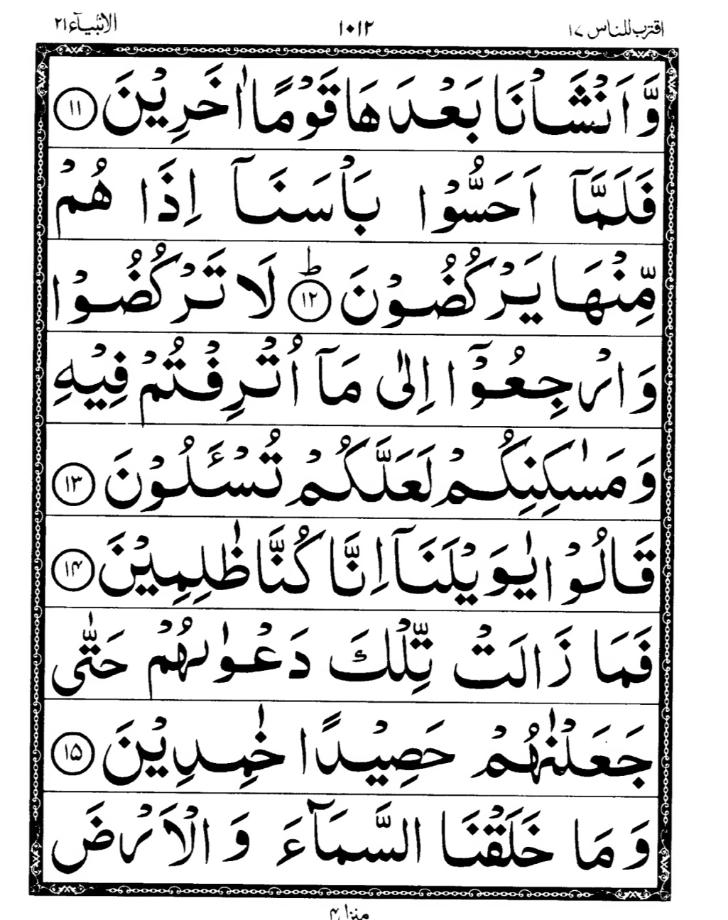 اقترب للناس ۱۷ ۱۰۱۲ الانبیآء ۲۱
وَّاَنْشَاْنَا بَعْدَهَا قَوْمًا اٰخَرِيْنَ ۝۱۱
فَلَمَّاۤ اَحَسُّوْا بَاْسَنَاۤ اِذَا هُمْ
مِّنْهَا يَرْكُضُوْنَ ؕ۝۱۲ لَا تَرْكُضُوْا
وَارْجِعُوْۤا اِلٰى مَاۤ اُتْرِفْتُمْ فِيْهِ
وَمَسٰكِنِكُمْ لَعَلَّكُمْ تُسْـَٔلُوْنَ ۝۱۳
قَالُوْا يٰوَيْلَنَاۤ اِنَّا كُنَّا ظٰلِمِيْنَ ۝۱۴
فَمَا زَالَتْ تِّلْكَ دَعْوٰىهُمْ حَتّٰى
جَعَلْنٰهُمْ حَصِيْدًا خٰمِدِيْنَ ۝۱۵
وَمَا خَلَقْنَا السَّمَآءَ وَالْاَرْضَ
منزل ۴